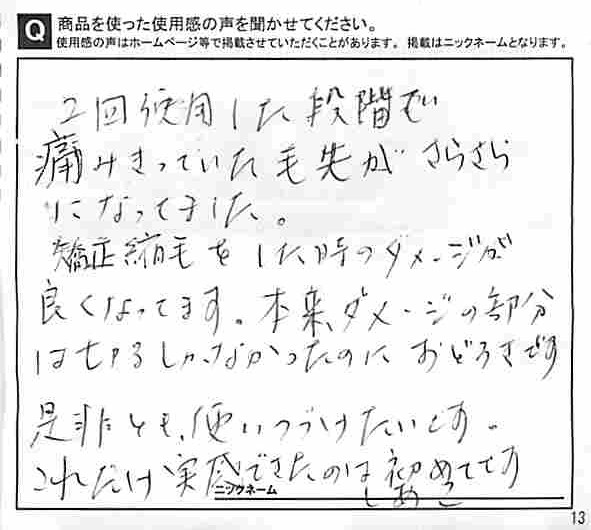 Q 商品を使った使用感の声を聞かせてください。
使用感の声はホームページ等で掲載させていただくことがあります。 掲載はニックネームとなります。
2回使用した段階で
痛みきっていた毛先がさらさら
になってました。
矯正縮毛をした時のダメージが
良くなってます。本来、ダメージの部分
は切るしかなかったのにおどろきです
是非とも、使いつづけたいです。
これだけ実感できたのは初めてです
ニックネーム しあこ
13